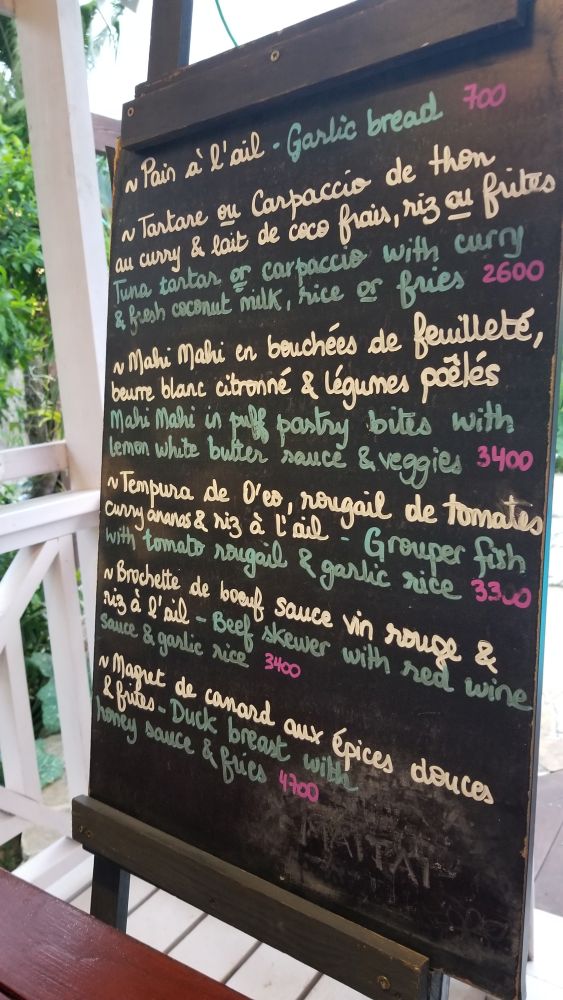 ~ Pain à l'ail - Garlic bread 700
~ Tartare ou Carpaccio de thon
au curry & lait de coco frais, riz ou frites
Tuna tartar or carpaccio with curry
& fresh coconut milk, rice or fries 2600
~ Mahi Mahi en bouchées de feuilleté,
beurre blanc citronné & légumes poêlés
Mahi Mahi in puff pastry bites with
lemon white butter sauce & veggies 3400
~ Tempura de O'eo, rougail de tomates
curry ananas & riz à l'ail - Grouper fish
with tomato rougail & garlic rice 3300
~ Brochette de boeuf sauce vin rouge &
riz à l'ail - Beef skewer with red wine
sauce & garlic rice 3400
~ Magret de canard aux épices douces
& frites - Duck breast with
honey sauce & fries 4700
MAITAI